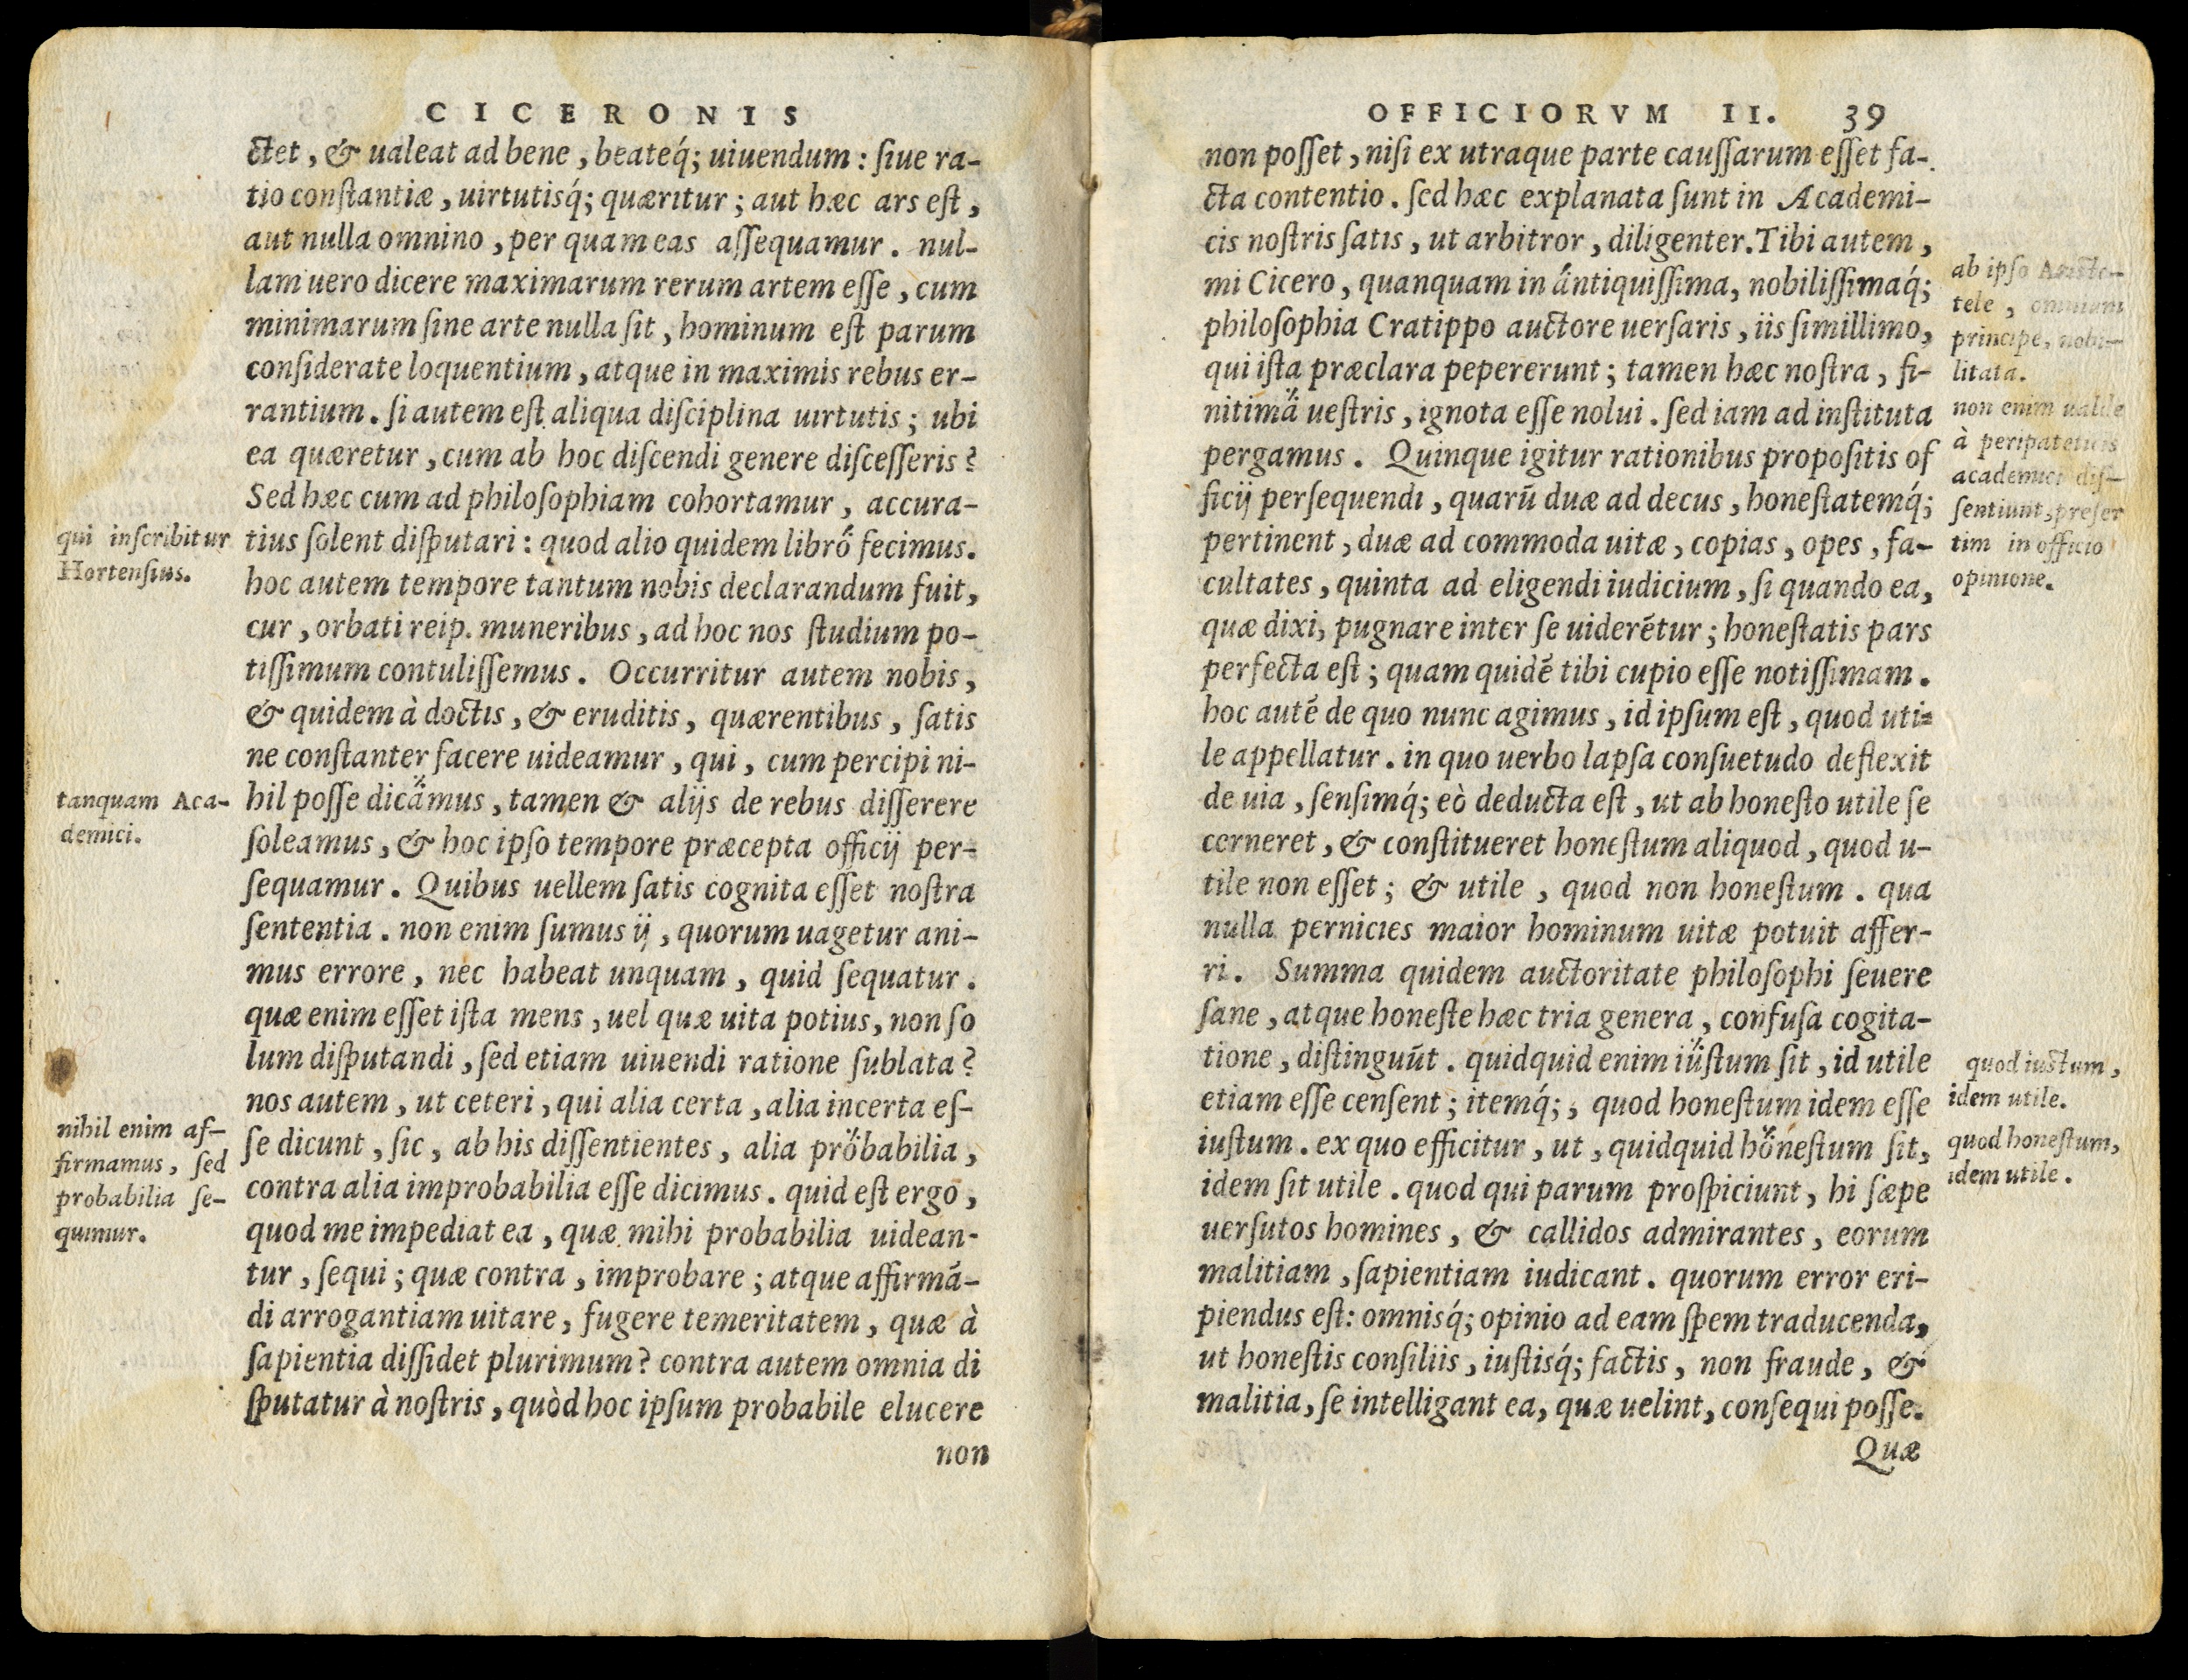 CICERONIS
ctet, & ualeat ad bene, beateq́; uiuendum: ſiue ra-
tio conſtantiæ, uirtutisq́; quæritur; aut hæc ars eſt,
aut nulla omnino, per quam eas aſſequamur. nul-
lam uero dicere maximarum rerum artem eſſe, cum
minimarum ſine arte nulla ſit, hominum eſt parum
conſiderate loquentium, atque in maximis rebus er-
rantium. ſi autem eſt aliqua diſciplina uirtutis; ubi
ea quæretur, cum ab hoc diſcendi genere diſceſſeris?
Sed hæc cum ad philoſophiam cohortamur, accura-
tius ſolent diſputari: quod alio quidem libro fecimus.
hoc autem tempore tantum nobis declarandum fuit,
cur, orbati reip. muneribus, ad hoc nos ſtudium po-
tiſſimum contuliſſemus. Occurritur autem nobis,
& quidem à doctis, & eruditis, quærentibus, ſatis
ne conſtanter facere uideamur, qui, cum percipi ni-
hil poſſe dicamus, tamen & alijs de rebus diſſerere
ſoleamus, & hoc ipſo tempore præcepta officij per-
ſequamur. Quibus uellem ſatis cognita eſſet noſtra
ſententia. non enim ſumus ij, quorum uagetur ani-
mus errore, nec habeat unquam, quid ſequatur.
quæ enim eſſet iſta mens, uel quæ uita potius, non ſo
lum diſputandi, ſed etiam uiuendi ratione ſublata?
nos autem, ut ceteri, qui alia certa, alia incerta eſ-
ſe dicunt, ſic, ab his diſſentientes, alia probabilia,
contra alia improbabilia eſſe dicimus. quid eſt ergo,
quod me impediat ea, quæ mihi probabilia uidean-
tur, ſequi; quæ contra, improbare; atque affirmā-
di arrogantiam uitare, fugere temeritatem, quæ à
ſapientia diſſidet plurimum? contra autem omnia di
ſputatur à noſtris, quòd hoc ipſum probabile elucere
non
qui inſcribitur
Hortenſius.
tanquam Aca-
demici.
nihil enim af-
firmamus, ſed
probabilia ſe-
quimur.
OFFICIORVM II. 39
non poſſet, niſi ex utraque parte cauſſarum eſſet fa-
cta contentio. ſed hæc explanata ſunt in Academi-
cis noſtris ſatis, ut arbitror, diligenter. Tibi autem,
mi Cicero, quanquam in antiquiſſima, nobiliſſimaq́;
philoſophia Cratippo auctore uerſaris, iis ſimillimo,
qui iſta præclara pepererunt; tamen hæc noſtra, fi-
nitima ueſtris, ignota eſſe nolui. ſed iam ad inſtituta
pergamus. Quinque igitur rationibus propoſitis of
ficij perſequendi, quarū duæ ad decus, honeſtatemq́;
pertinent, duæ ad commoda uitæ, copias, opes, fa-
cultates, quinta ad eligendi iudicium, ſi quando ea,
quæ dixi, pugnare inter ſe uiderētur; honeſtatis pars
perfecta eſt; quam quidē tibi cupio eſſe notiſſimam.
hoc autē de quo nunc agimus, id ipſum eſt, quod uti-
le appellatur. in quo uerbo lapſa conſuetudo deflexit
de uia, ſenſimq́; eò deducta eſt, ut ab honeſto utile ſe
cerneret, & conſtitueret honeſtum aliquod, quod u-
tile non eſſet; & utile, quod non honeſtum. qua
nulla pernicies maior hominum uitæ potuit affer-
ri. Summa quidem auctoritate philoſophi ſeuere
ſane, atque honeſte hæc tria genera, confuſa cogita-
tione, diſtinguūt. quidquid enim iuſtum ſit, id utile
etiam eſſe cenſent; itemq́;, quod honeſtum idem eſſe
iuſtum. ex quo efficitur, ut, quidquid honeſtum ſit,
idem ſit utile. quod qui parum proſpiciunt, hi ſæpe
uerſutos homines, & callidos admirantes, eorum
malitiam, ſapientiam iudicant. quorum error eri-
piendus eſt: omnisq́; opinio ad eam ſpem traducenda,
ut honeſtis conſiliis, iuſtisq́; factis, non fraude, &
malitia, ſe intelligant ea, quæ uelint, conſequi poſſe.
Quæ
ab ipſo Ariſto-
tele, omnium
principe, nobi-
litata.
non enim ualde
à peripateticis
academici diſ-
ſentiunt, preſer
tim in officio
opinione.
quod iuſtum,
idem utile.
quod honeſtum,
idem utile.